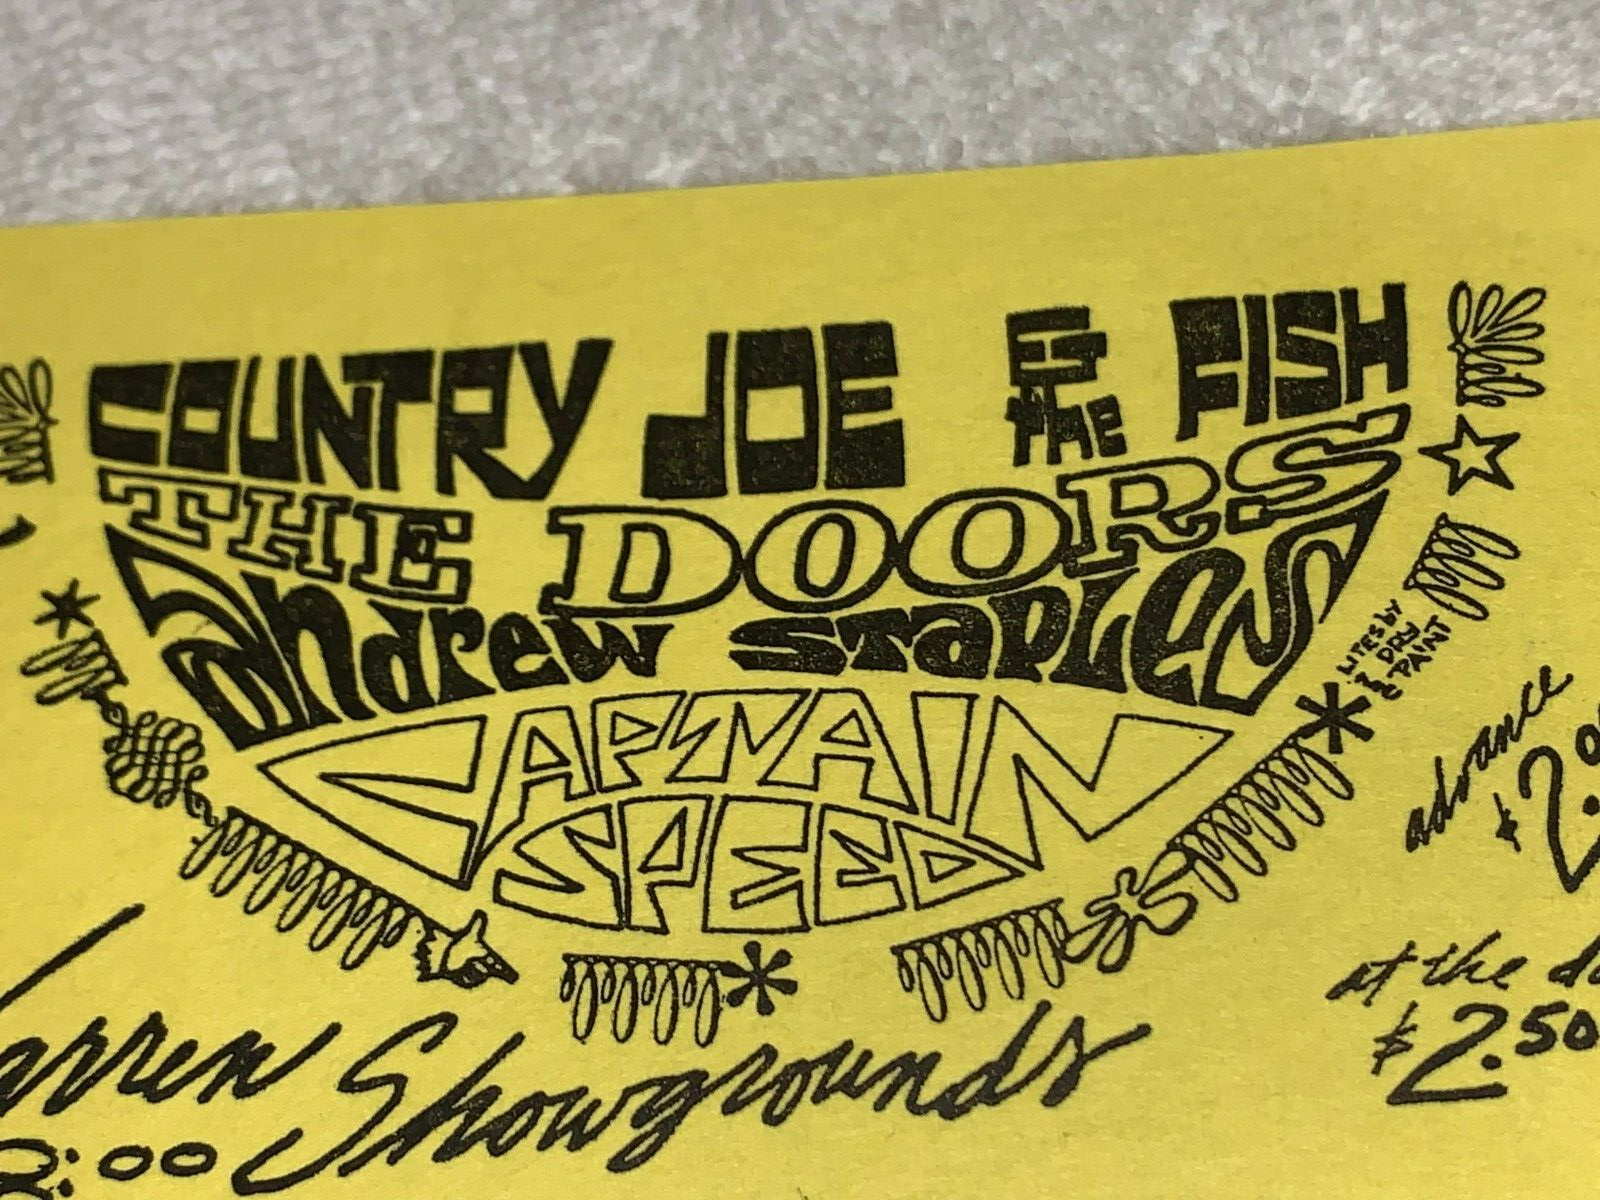 COUNTRY JOE & the FISH
THE DOORS
andrew STAPLES
CAPTAIN
SPEED
LITES by
DRY
PAINT
advance
$2.0
at the d
$2.50
arren Showgrounds
:00